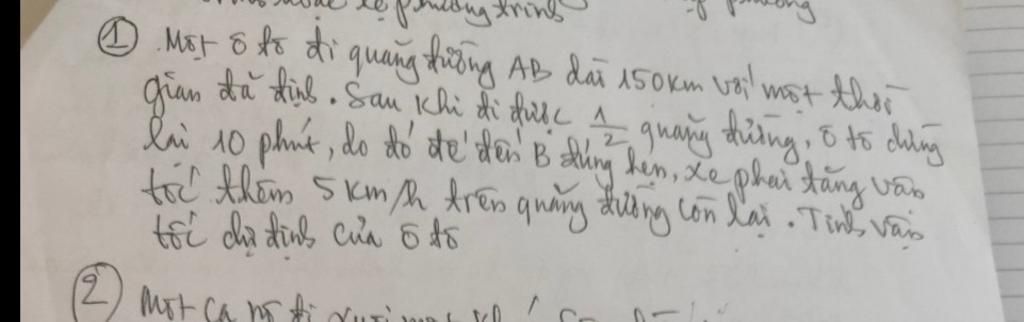 xe phương trình phương
① Một ô tô đi quãng đường AB dài 150km với một thời
gian đã định. Sau khi đi được 1/2 quãng đường, ô tô dừng
lại 10 phút, do đó để đến B đúng hẹn, xe phải tăng vận
tốc thêm 5 km/h trên quãng đường còn lại. Tính vận
tốc dự định của ô tô
② Một ca nô đi xuôi một